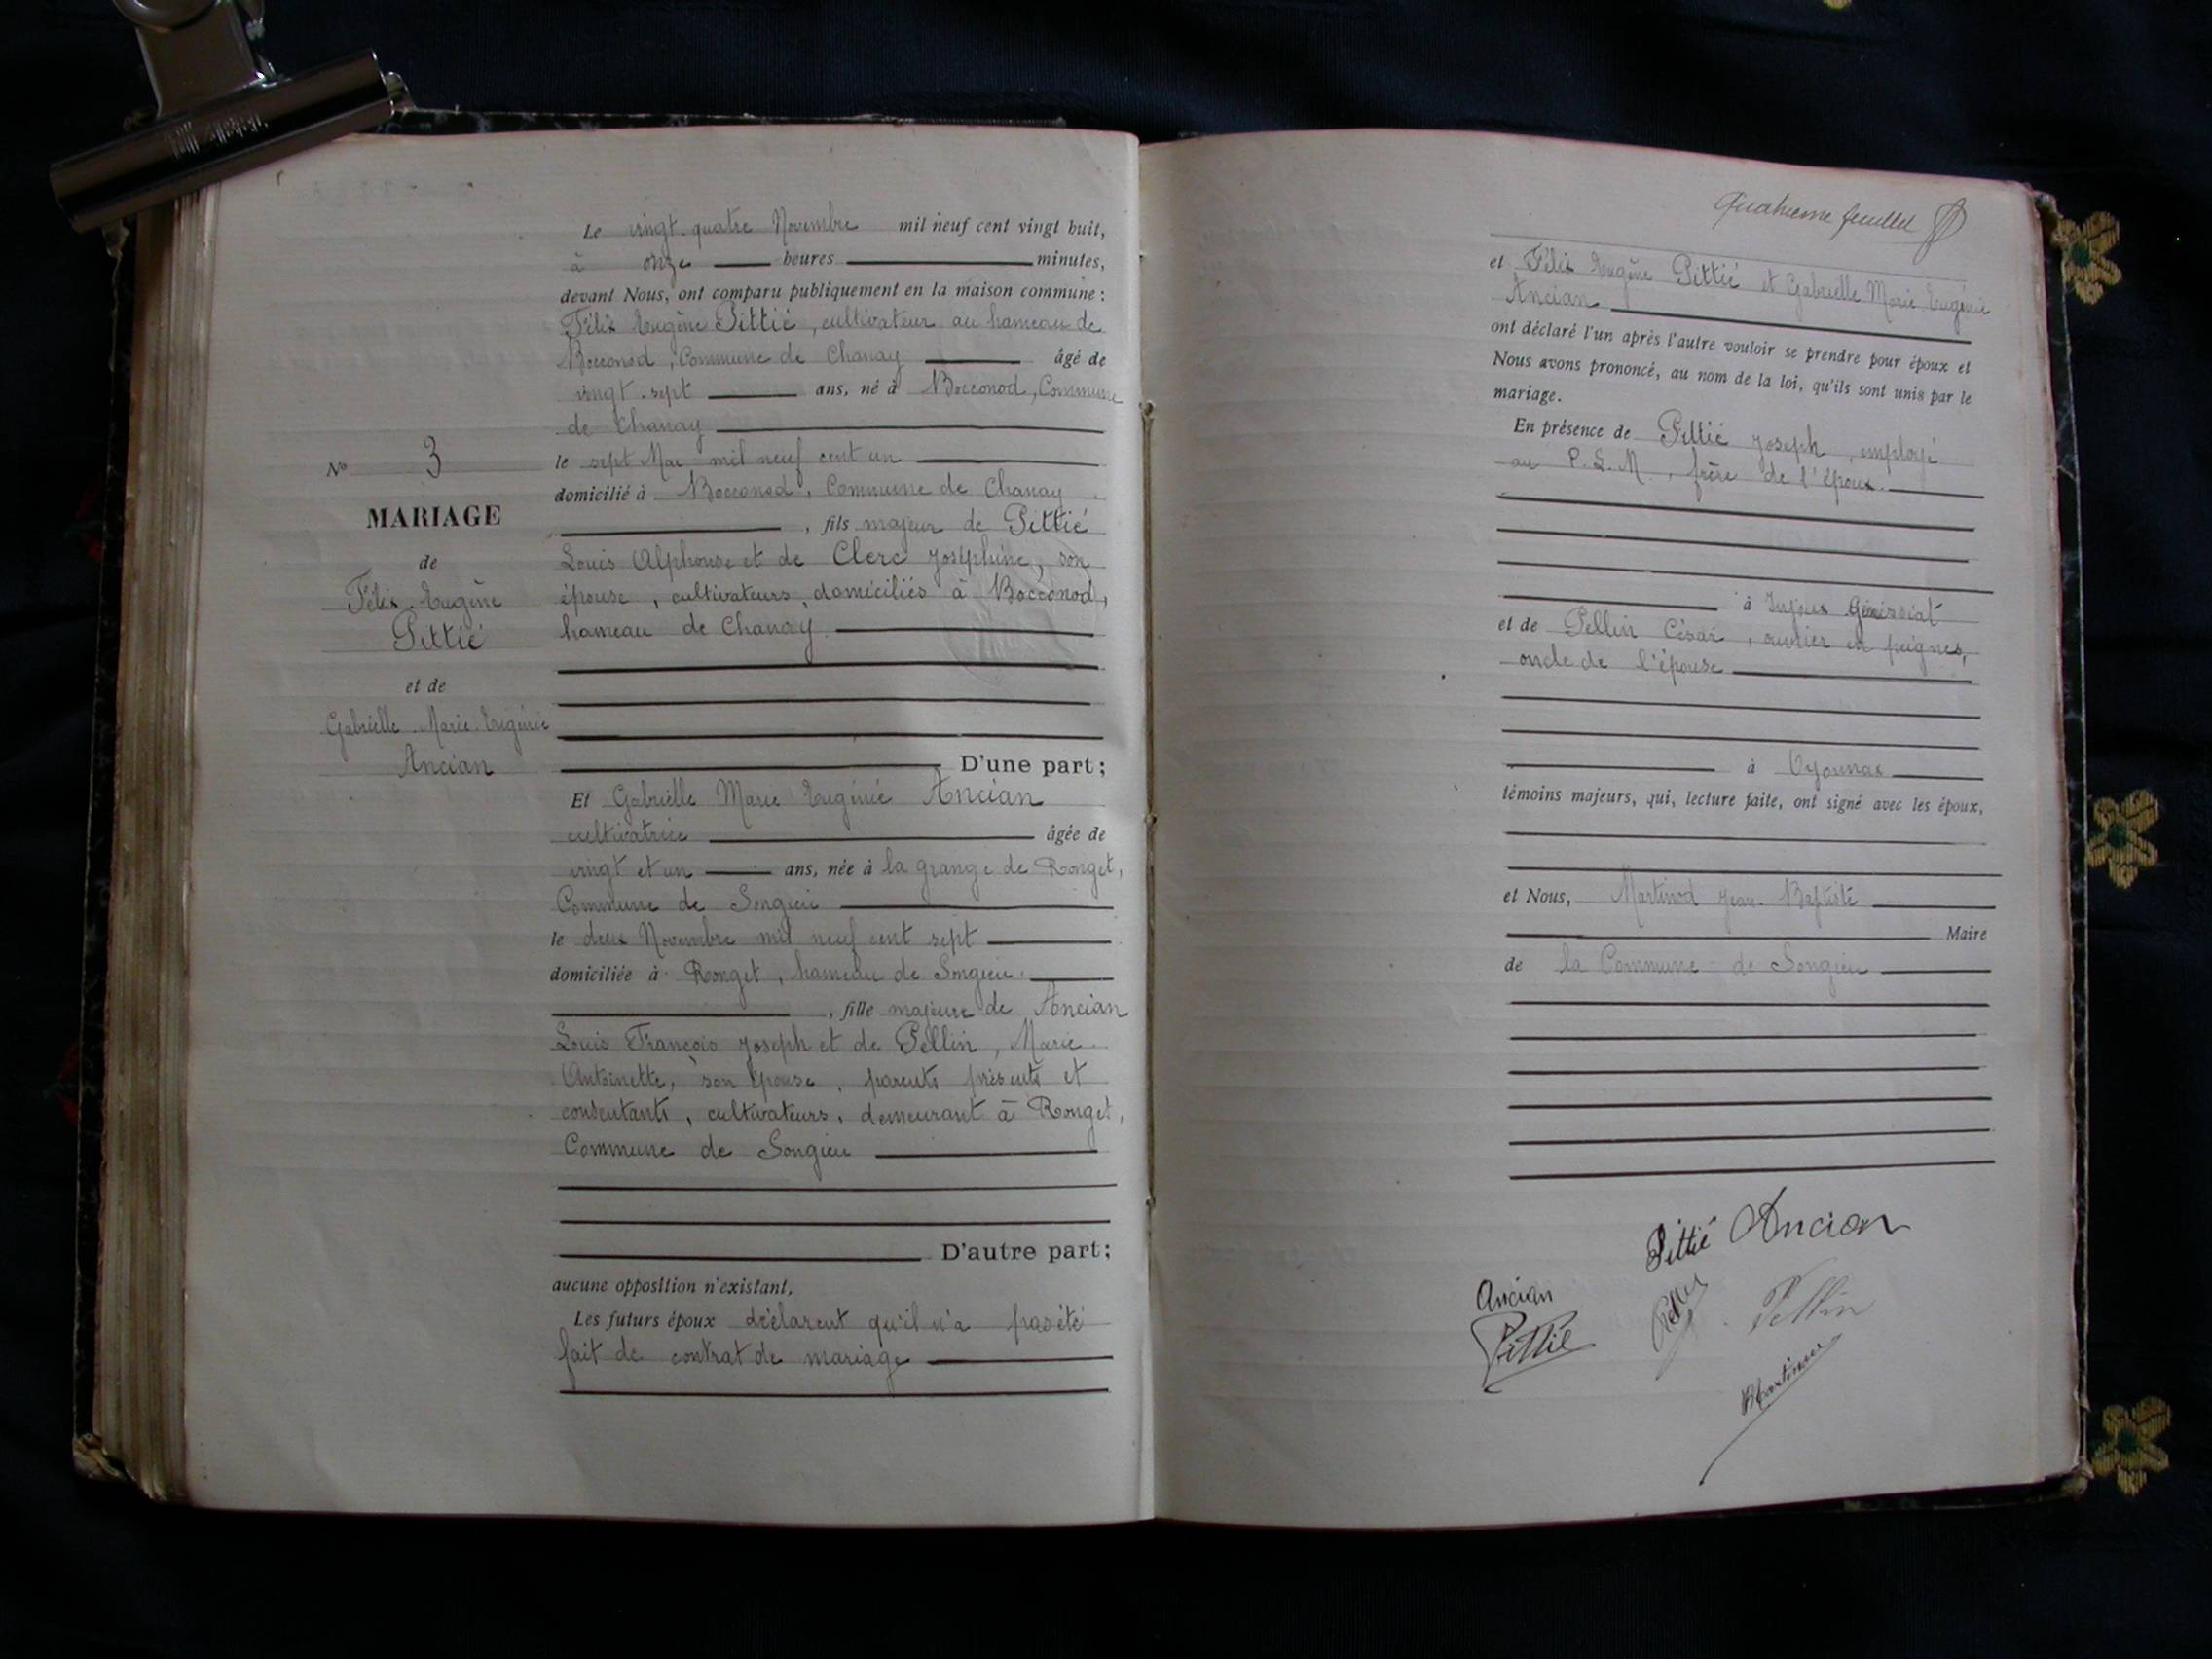 Le vingt-quatre Novembre mil neuf cent vingt huit,
à onze heures minutes,
devant Nous, ont comparu publiquement en la maison commune :
Félix Eugène Pittié, cultivateur au hameau de
Bocconod, Commune de Chanay âgé de
vingt-sept ans, né à Bocconod, Commune
de Chanay
le sept Mai mil neuf cent un
domicilié à Bocconod, Commune de Chanay
, fils majeur de Pittié
Louis Alphonse et de Clerc Joséphine, son
épouse, cultivateurs, domiciliés à Bocconod,
hameau de Chanay
D'une part ;
Et Gabrielle Marie Eugénie Ancian
cultivatrice âgée de
vingt et un ans, née à la grange de Ronget,
Commune de Songieu
le deux Novembre mil neuf cent sept
domiciliée à Ronget, hameau de Songieu.
, fille majeure de Ancian
Louis François Joseph et de Pellin, Marie
Antoinette, son épouse, parents présents et
consentants, cultivateurs, demeurant à Ronget,
Commune de Songieu
D'autre part ;
aucune opposition n'existant,
Les futurs époux déclarent qu'il n'a pas été
fait de contrat de mariage
N° 3
MARIAGE
de
Félix Eugène
Pittié
et de
Gabrielle Marie Eugénie
Ancian
Quatrième feuillet
et Félix Eugène Pittié et Gabrielle Marie Eugénie
Ancian
ont déclaré l'un après l'autre vouloir se prendre pour époux et
Nous avons prononcé, au nom de la loi, qu'ils sont unis par le
mariage.
En présence de Pittié Joseph, employé
au P.L.M., frère de l'époux.
à Injoux Génissiat
et de Pellin César, ouvrier en peignes,
oncle de l'épouse
à Oyonnax
témoins majeurs, qui, lecture faite, ont signé avec les époux,
et Nous, Martinod Jean-Baptiste
Maire
de la Commune de Songieu
Pittié Ancian
Ancian
Pellin
Pittié